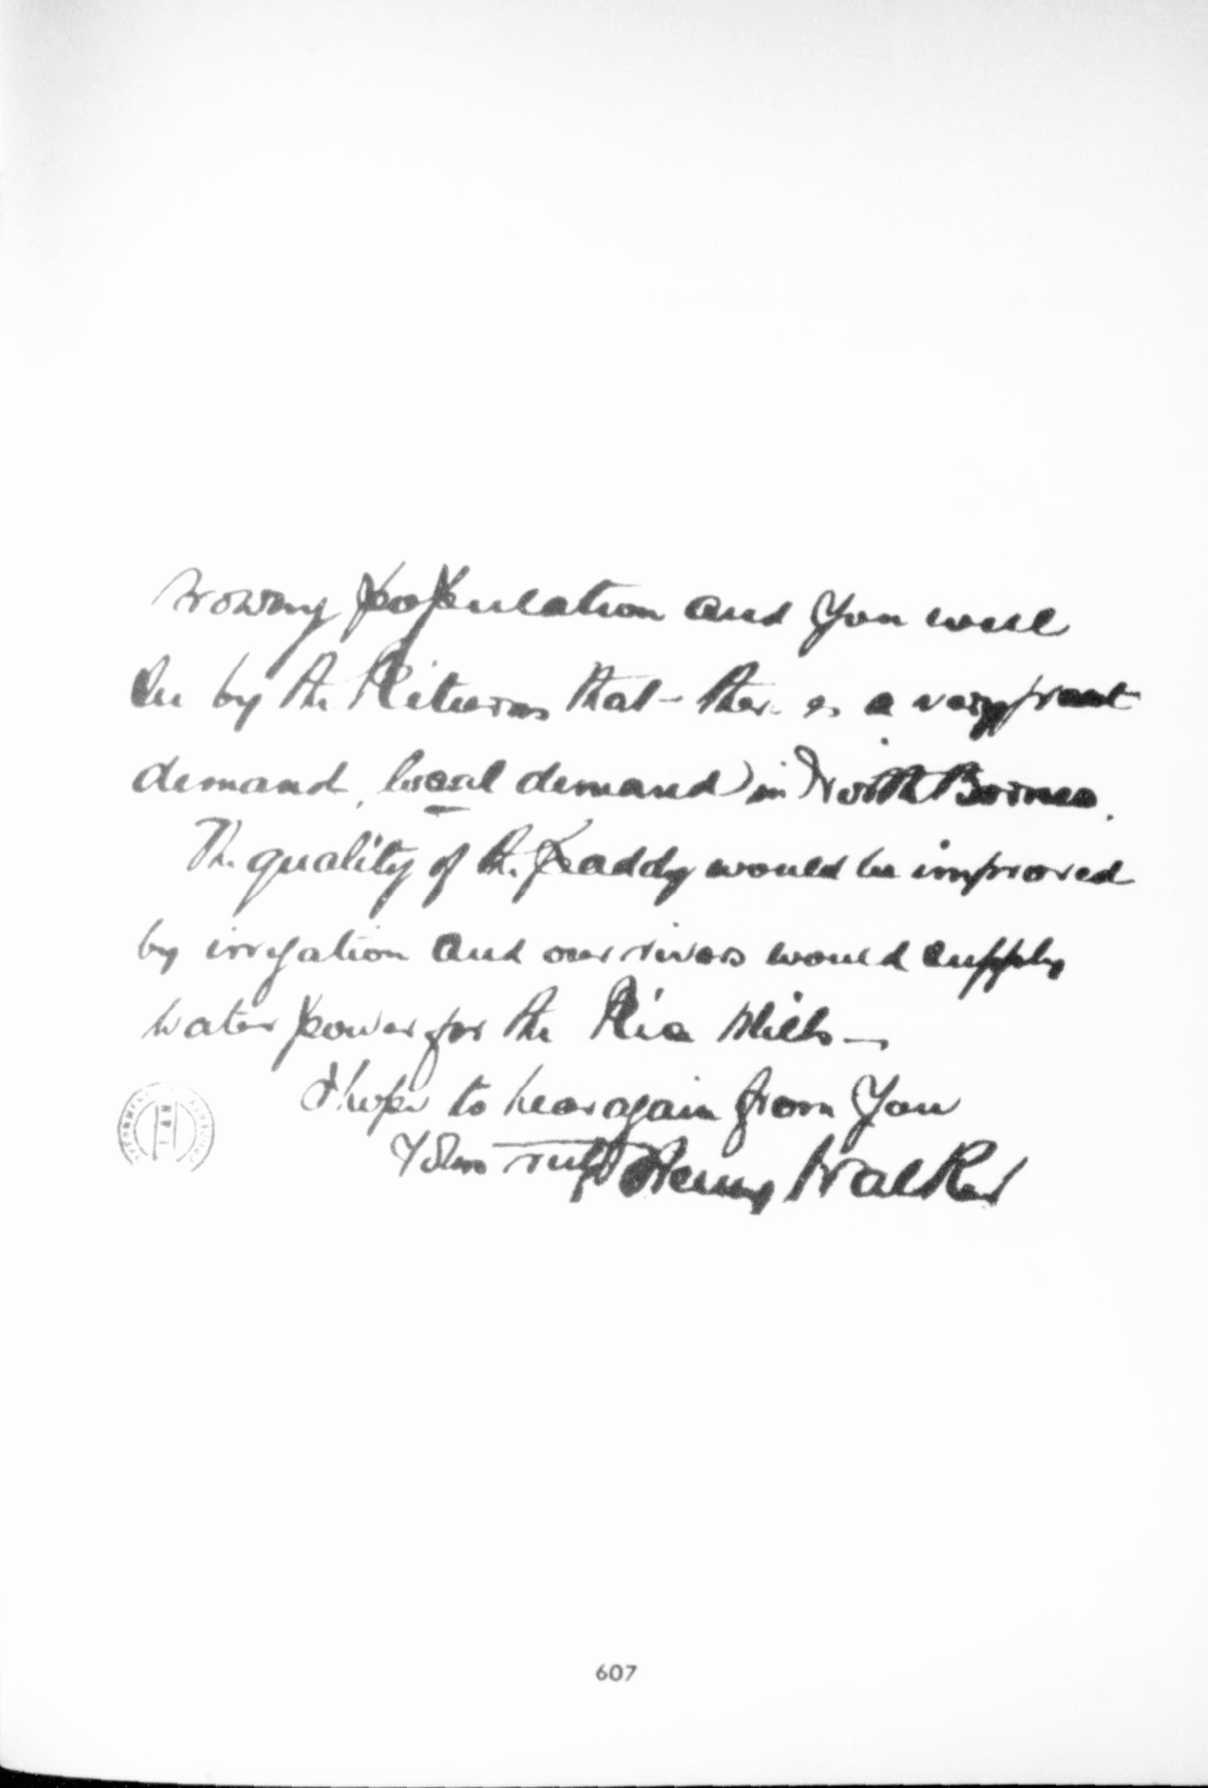 growing population and you will
see by the Returns that there is a very great
demand, local demand) in North Borneo.
The quality of the paddy would be improved
by irrigation and our rivers would supply
water power for the Rice Mills —
I hope to hear again from You
Yours Henry Walker
607